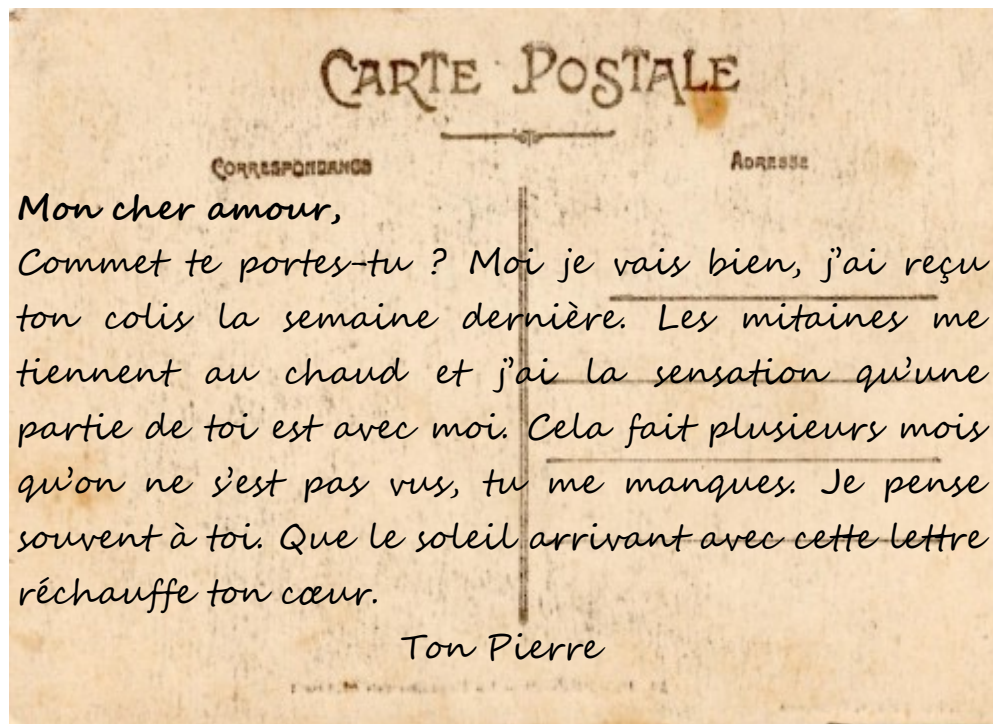 CARTE POSTALE
CORRESPONDANCE
ADRESSE
Mon cher amour,
Commet te portes-tu ? Moi je vais bien, j'ai reçu
ton colis la semaine dernière. Les mitaines me
tiennent au chaud et j'ai la sensation qu'une
partie de toi est avec moi. Cela fait plusieurs mois
qu'on ne s'est pas vus, tu me manques. Je pense
souvent à toi. Que le soleil arrivant avec cette lettre
réchauffe ton cœur.
Ton Pierre